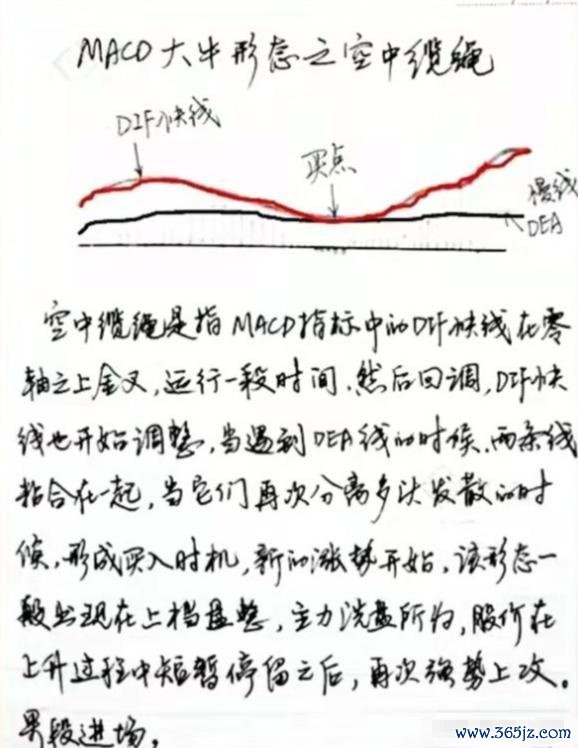 MACD大牛形态之空中缆绳
DIF快线
买点
慢线
DEA
空中缆绳是指MACD指标中的DIF快线在零
轴之上金叉,运行一段时间.然后回调,DIF快
线也开始调整,当遇到DEA线的时候.两条线
粘合在一起,当它们再次分离多头发散的时
候,形成买入时机,新的涨势开始,该形态一
般出现在上档盘整,主力洗盘所为,股价在
上升过程中短暂停留之后,再次强势上攻。
果段进场.
www.365jz.com